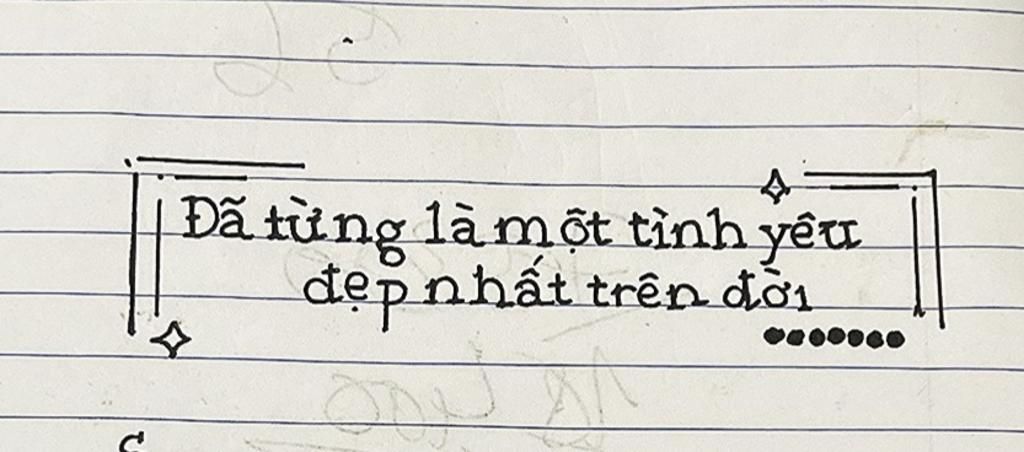 Đã từng là một tình yêu
đẹp nhất trên đời